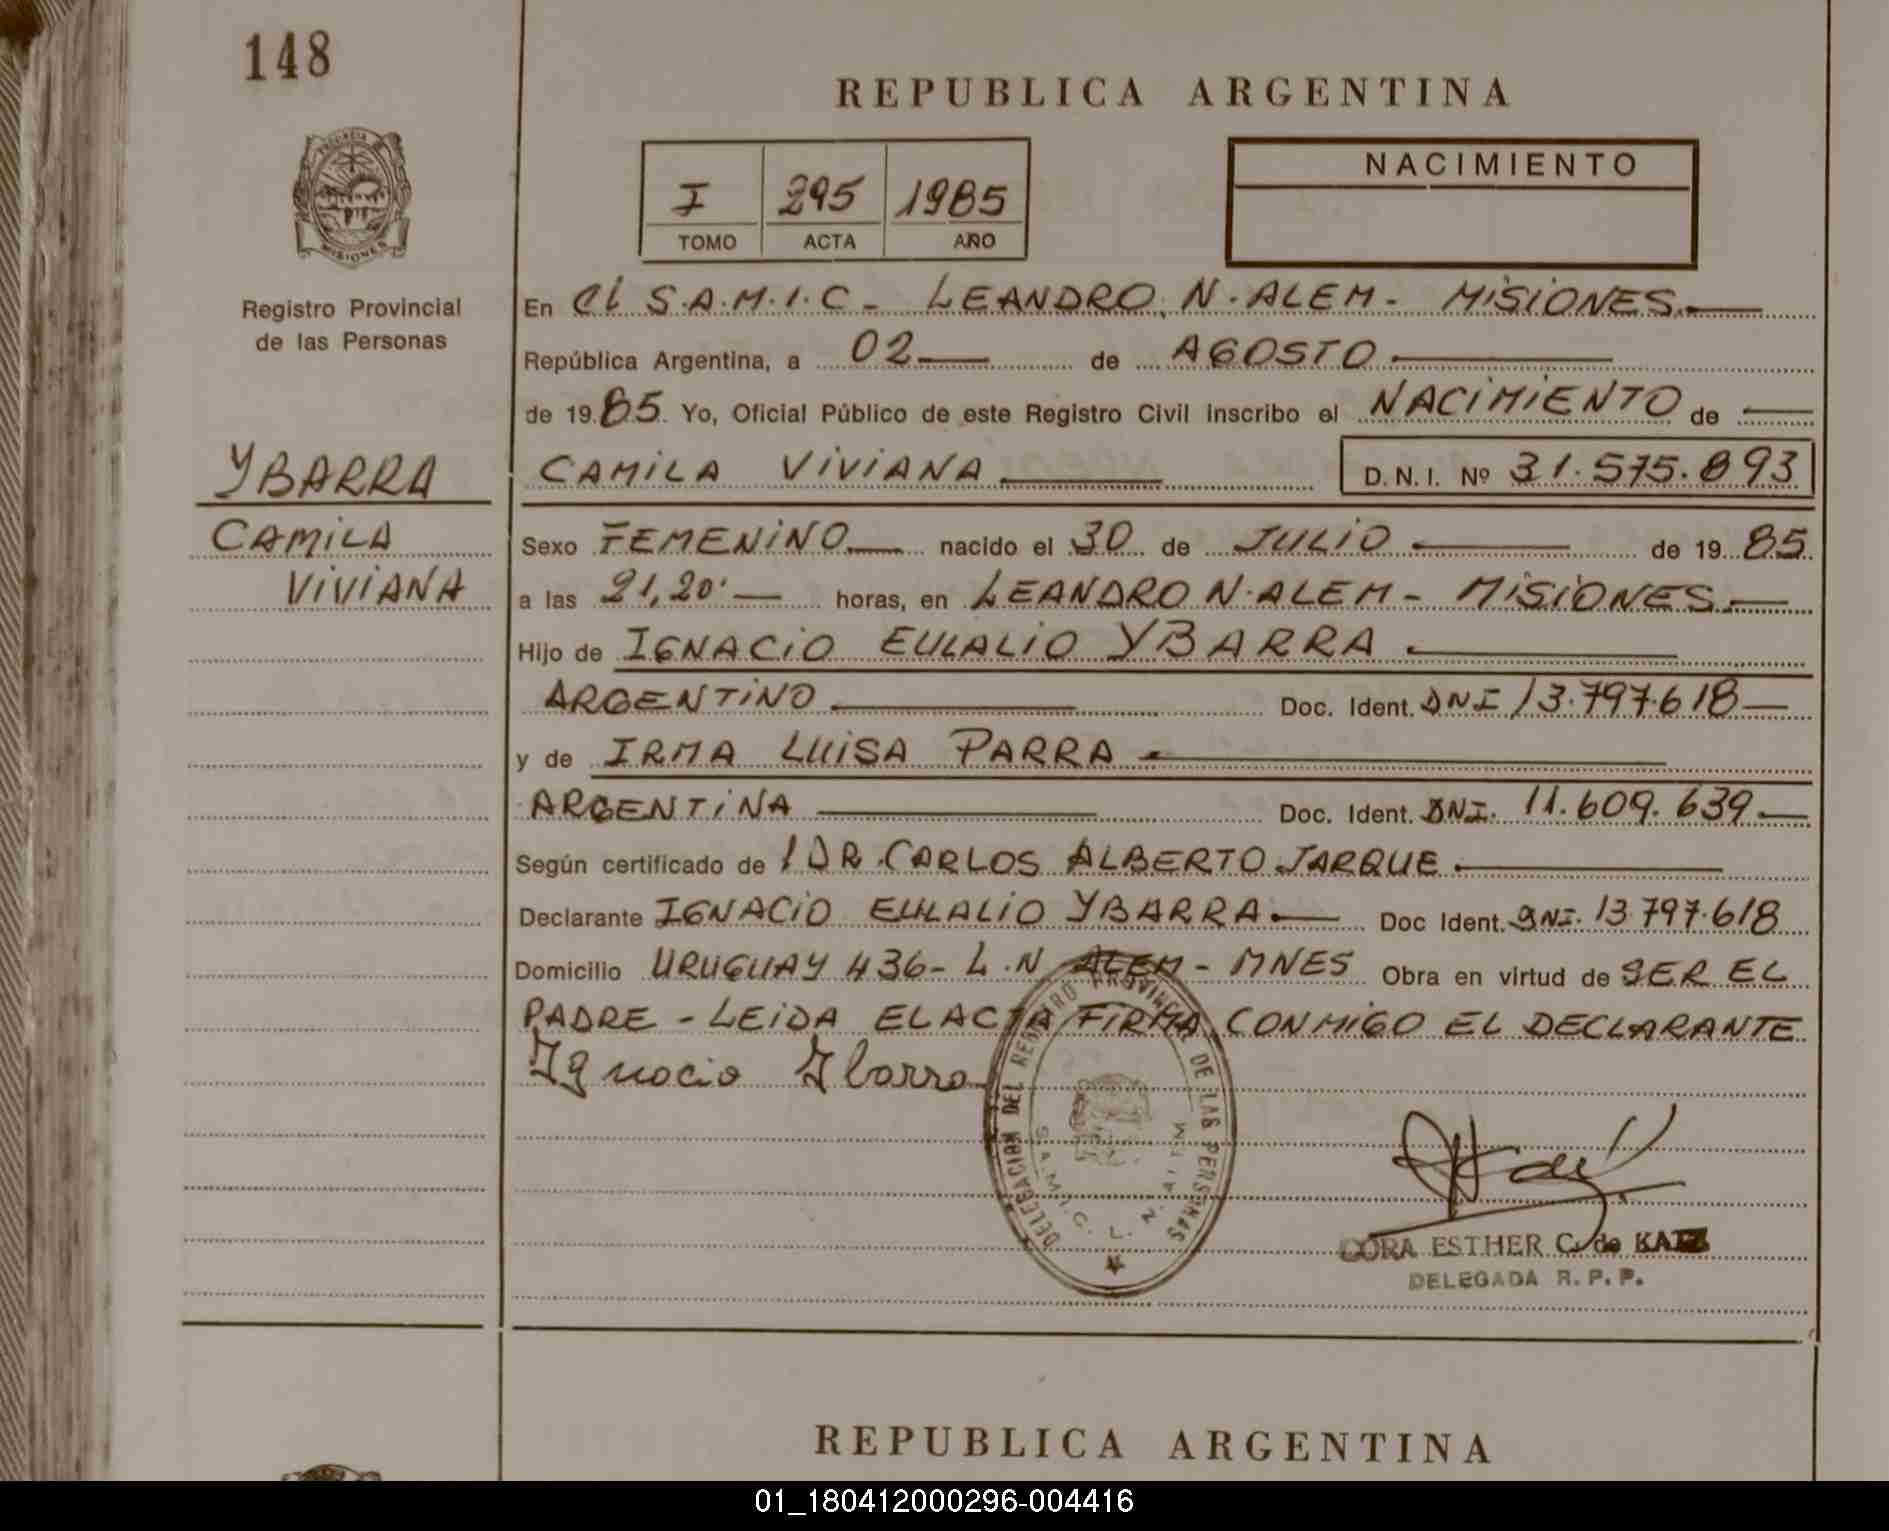 148
REPUBLICA ARGENTINA
PROVINCIA
MISIONES
I 295 1985
TOMO ACTA AÑO
NACIMIENTO
Registro Provincial
de las Personas
En el S.A.M.I.C - LEANDRO N. ALEM - MISIONES
República Argentina, a 02 de AGOSTO
de 1985 Yo, Oficial Público de este Registro Civil inscribo el NACIMIENTO de
YBARRA
CAMILA
VIVIANA
CAMILA VIVIANA D.N.I. Nº 31.575.893
Sexo FEMENINO nacido el 30 de JULIO de 1985
a las 21,20' horas, en LEANDRO N. ALEM - MISIONES
Hijo de IGNACIO EULALIO YBARRA
ARGENTINO Doc. Ident. DNI 13.797.618
y de IRMA LUISA PARRA
ARGENTINA Doc. Ident. DNI. 11.609.639
Según certificado de l DR. CARLOS ALBERTO JARQUE
Declarante IGNACIO EULALIO YBARRA Doc Ident. DNI. 13.797.618
Domicilio URUGUAY 436 - L.N ALEM - MNES Obra en virtud de SER EL
PADRE - LEIDA EL ACTA FIRMA CONMIGO EL DECLARANTE
Ignacio Ibarra
DELEGACION DEL REGISTRO PROVINCIAL DE LAS PERSONAS
S.A.M.I.C. L. N. ALEM
CORA ESTHER C. de KATZ
DELEGADA R.P.P.
REPUBLICA ARGENTINA
01_180412000296-004416